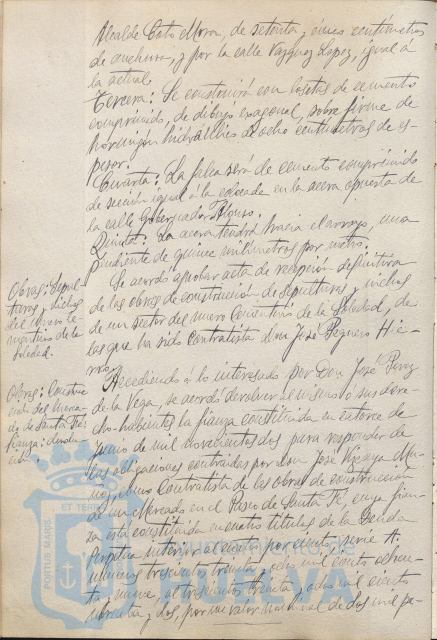 Alcalde Coto Mora, de setenta y cinco centímetros
de anchura, y por la calle Vazquez Lopez, igual á
la actual.
Tercera: Se construirá con losetas de cemento
comprimido, de dibujo exagonal, sobre firme de
hormigón hidráulico de ocho centímetros de es-
pesor.
Cuarta: La faja será de cemento comprimido
de sección igual á la colocada en la acera opuesta de
la calle Gobernador Alonso.
Quinta: La acera tendrá hacia el arroyo, una
pendiente de quince milímetros por metro.
Obras: Sepul-
turas y nichos
del nuevo Ce-
menterio de la
Soledad.
Se acordó aprobar acta de recepción definitiva
de las obras de construcción de sepulturas y nichos
de un sector del nuevo Cementerio de la Soledad, de
las que ha sido contratista don José Peguero Hie-
rro.
Obras: Construc-
ción del Merca-
do de Santa Fé:
fianza: devolu-
ción.
Accediendo á lo interesado por Don José Perez
de la Vega, se acordó devolver al mismo ó sus dere-
cho-habientes la fianza constituida en catorce de
Junio de mil novecientos dos para responder de
las obligaciones contraidas por don José Vizcaya Mu-
ñoz, como Contratista de las obras de construcción
de un Mercado en el Paseo de Santa Fé, cuya fian-
za está constituida en cuatro títulos de la Deuda
Perpetua interior al cuatro por ciento, serie A.
números trescientos treinta y ocho mil ciento ochen-
ta y nueve, al trescientos treinta y ocho mil ciento
noventa y dos, por un valor nominal de dos mil pe-
PORTUS MARIS
ET TERRAE
Ayuntamiento de
HUELVA